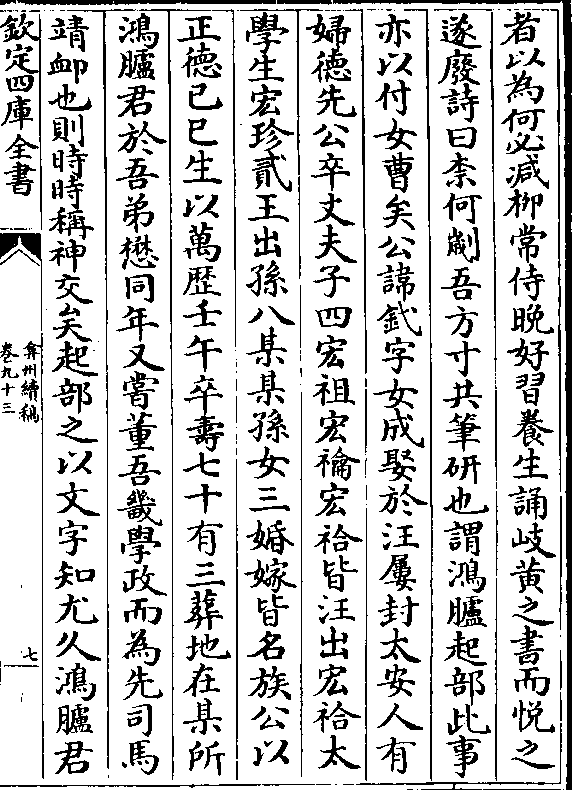 者以為何必減柳常侍晚好習養生誦岐黄之書而悦之
遂廢詩曰柰何劌吾方寸共筆研也謂鴻臚起部此事
亦以付女曹矣公諱釴字女成娶於汪屢封太安人有
婦徳先公卒丈夫子四宏祖宏禴宏祫皆汪出宏袷太
學生宏珍貳王出孫八某某孫女三婚嫁皆名族公以
正徳己巳生以萬歴壬午卒壽七十有三葬地在某所
鴻臚君於吾弟懋同年又嘗董吾畿學政而為先司馬
靖卹也則時時稱神交矣起部之以文字知尤久鴻臚君
欽定四庫全書
弇州續稿
卷九十三
七